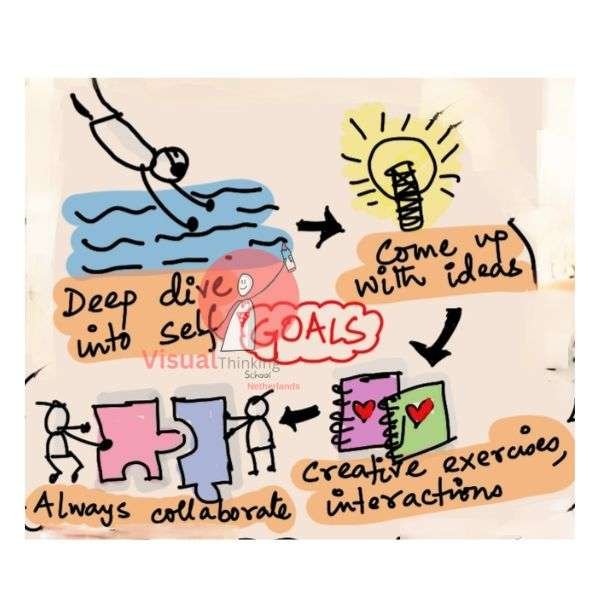 Deep dive
into self
Come up
with ideas
GOALS
Visual Thinking
School
Netherlands
Creative exercises,
interactions
Always collaborate